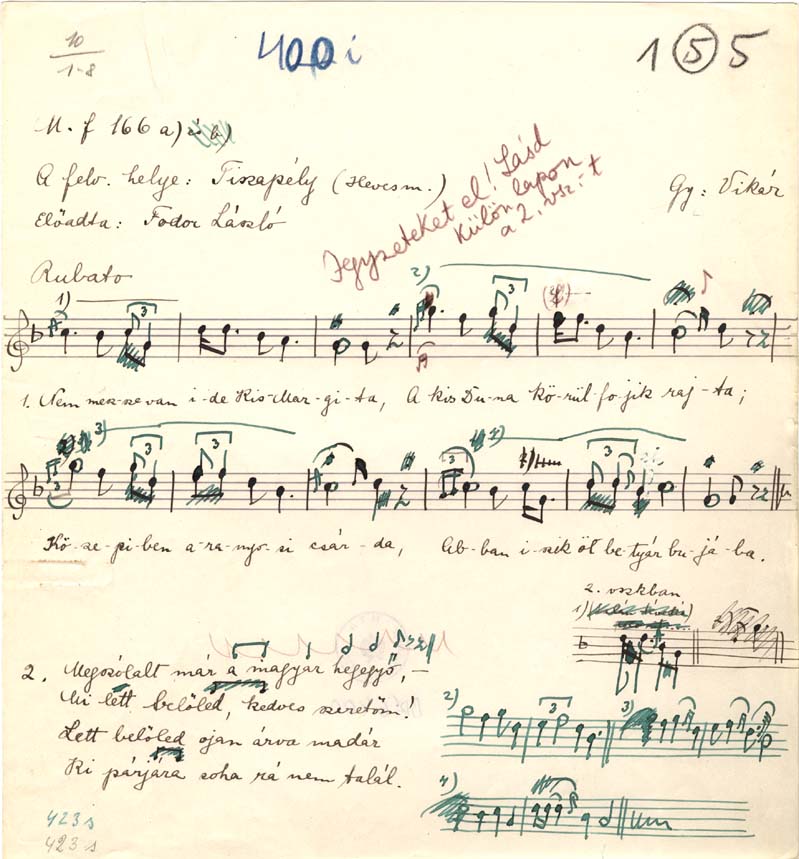 10
1-8
400i
1 5 5
M. f 166 a) és b)
A felv. helye: Tiszapély (Heves m.)
Gy: Vikár
Előadta: Fodor László
Jegyzeteket el! Lásd
külön lapon
a 2. vsz.-t
Rubato
1)
3
2)
3
1. Nem mesz-sze van i-de Kis-Mar-gi-ta, A kis Du-na kö-rül-fo-jik raj-ta;
3)
3
3
3
3
3
Kö-ze-pi-ben a-ra-nyo-si csár-da, Ab-ban i-szik öt be-tyár bu-já-ba.
2. vszkban
1)
2. Megszólalt már a magyar hegegyő, –
Mi lett belőled, kedves szeretőm!
Lett belőled ojan árva madár
Ki párjára soha rá nem talál.
2)
3
3)
4)
423 s
423 s